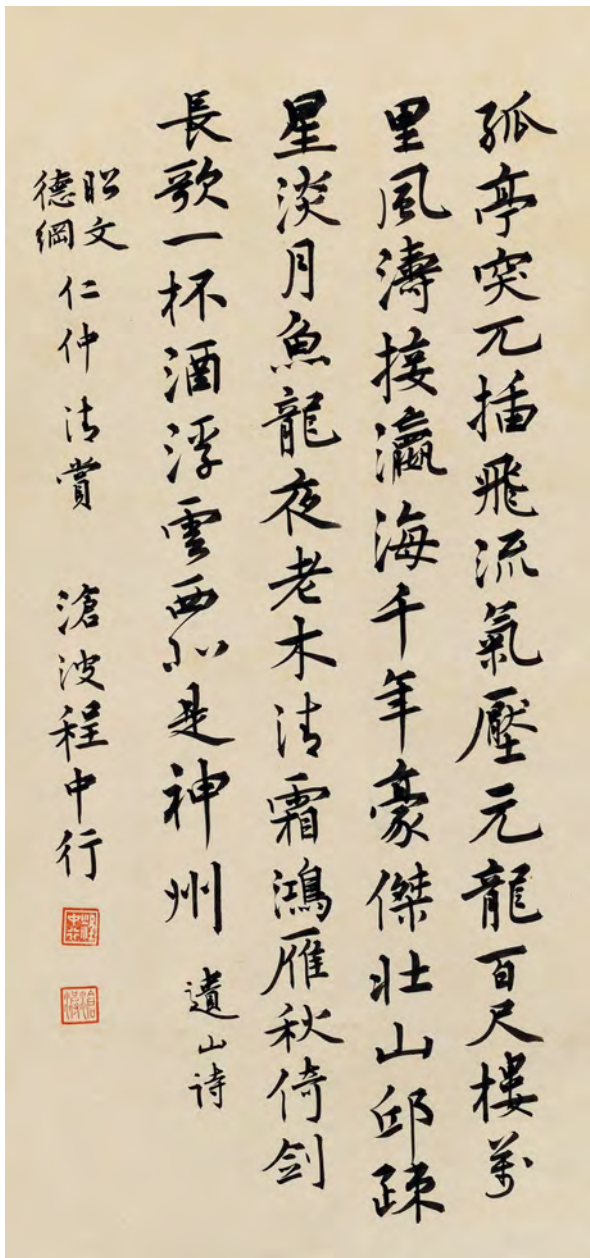 孤亭突兀插飛流氣壓元龍百尺樓萬
里風濤接瀛海千年豪傑壯山邱疎
星淡月魚龍夜老木清霜鴻雁秋倚劍
長歌一杯酒浮雲西北是神州 遺山詩
文
德綱
仁仲 清賞 滄波程中行
滄波